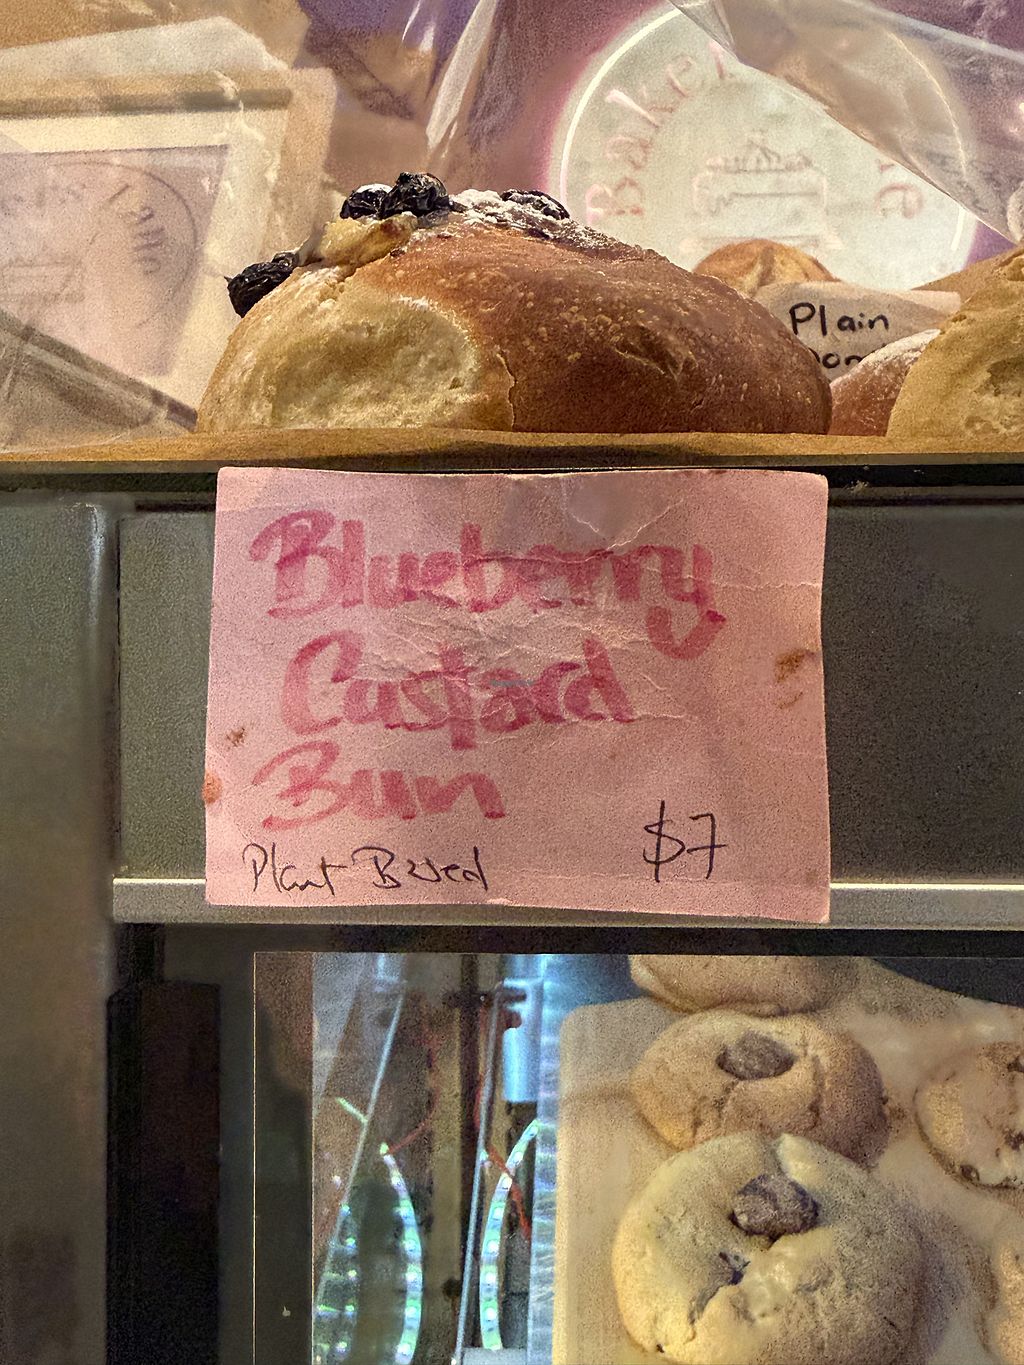 Bakery
Plain
Blueberry
Custard
Bun
Plant Based
$7